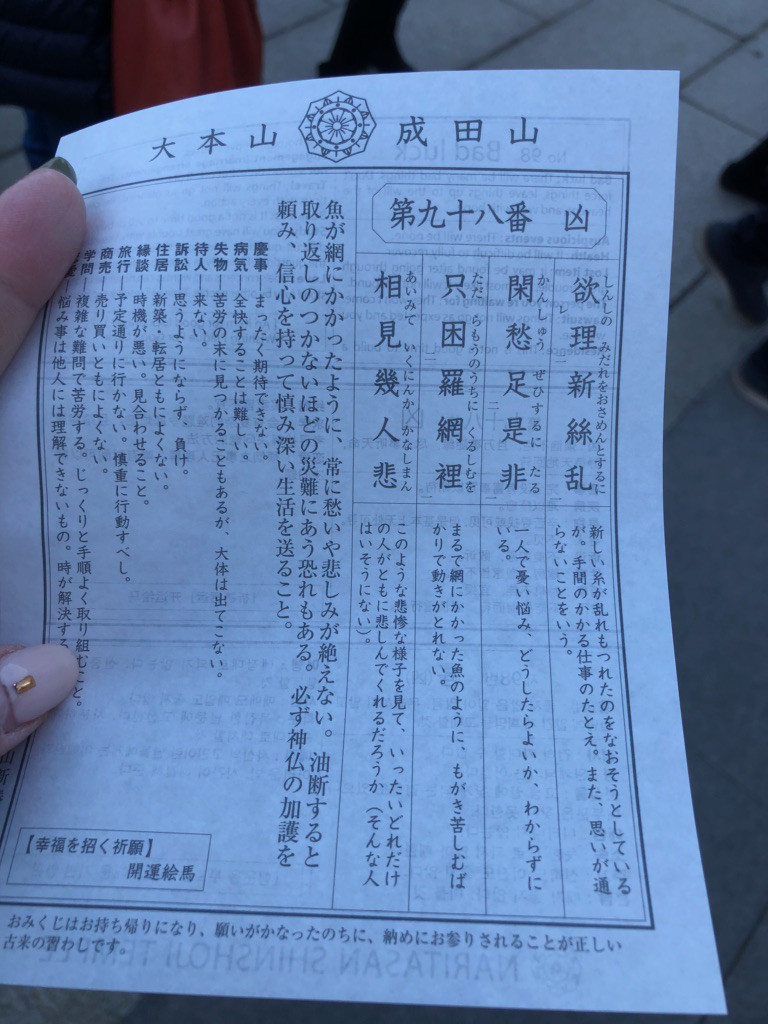 大本山 成田山
第九十八番 凶
しんしの みだれをおさめんとするに
欲理新絲乱
新しい糸が乱れもつれたのをなおそうとしている
が。手間のかかる仕事のたとえ。また、思いが通
らないことをいう。
かんしゅう ぜひするに たる
閑愁足是非
一人で憂い悩み、どうしたらよいか、わからずに
いる。
ただ らもうのうちに くるしむを
只困羅網裡
まるで網にかかった魚のように、もがき苦しむば
かりで動きがとれない。
あいみて いくにんか かなしまん
相見幾人悲
このような悲惨な様子を見て、いったいどれだけ
の人がともに悲しんでくれるだろうか（そんな人
はいそうにない）。
魚が網にかかったように、常に愁いや悲しみが絶えない。油断すると
取り返しのつかないほどの災難にあう恐れもある。必ず神仏の加護を
頼み、信心を持って慎み深い生活を送ること。
慶事―まったく期待できない。
病気―全快することは難しい。
失物―苦労の末に見つかることもあるが、大体は出てこない。
待人―来ない。
訴訟―思うようにならず、負け。
住居―新築・転居ともによくない。
縁談―時機が悪い。見合わせること。
旅行―予定通りに行かない。慎重に行動すべし。
商売―売り買いともによくない。
学問―複雑な難問で苦労する。じっくりと手順よく取り組むこと。
悩み事は他人には理解できないもの。時が解決する
【幸福を招く祈願】
開運絵馬
おみくじはお持ち帰りになり、願いがかなったのちに、納めにお参りされることが正しい
古来の習わしです。